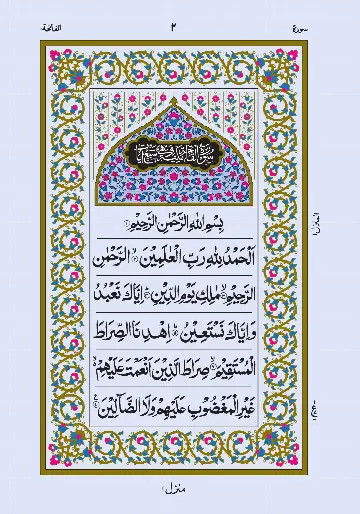 سورة ٢ الفاتحة
بِسْمِ اللهِ الرَّحْمٰنِ الرَّحِيْمِ
اَلْحَمْدُ لِلّٰهِ رَبِّ الْعٰلَمِيْنَ الرَّحْمٰنِ
الرَّحِيْمِ مٰلِكِ يَوْمِ الدِّيْنِ اِيَّاكَ نَعْبُدُ
وَاِيَّاكَ نَسْتَعِيْنُ اِهْدِنَا الصِّرَاطَ
الْمُسْتَقِيْمَ صِرَاطَ الَّذِيْنَ اَنْعَمْتَ عَلَيْهِمْ
غَيْرِ الْمَغْضُوْبِ عَلَيْهِمْ وَلَا الضَّآلِّيْنَ
منزل